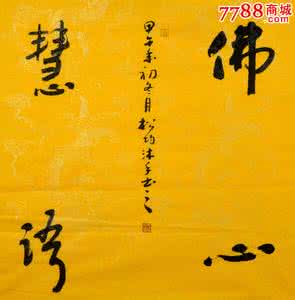 7788商城
.com
佛心
慧语
甲午年初冬月松均沐手书之